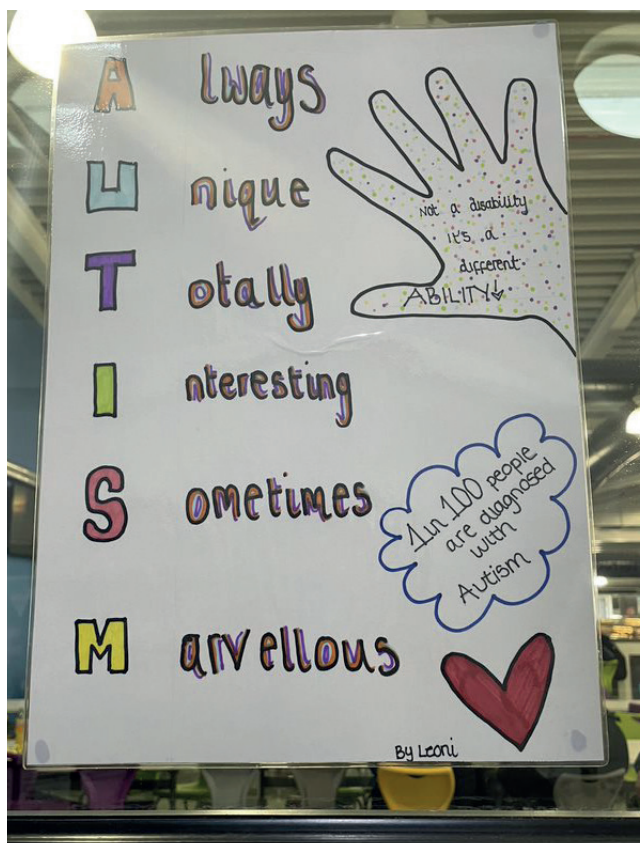 Always
Unique
Totally
Interesting
Sometimes
Marvellous
Not a disability
it's a
different
ABILITY!
1 in 100 people
are diagnosed
with
Autism
By Leoni